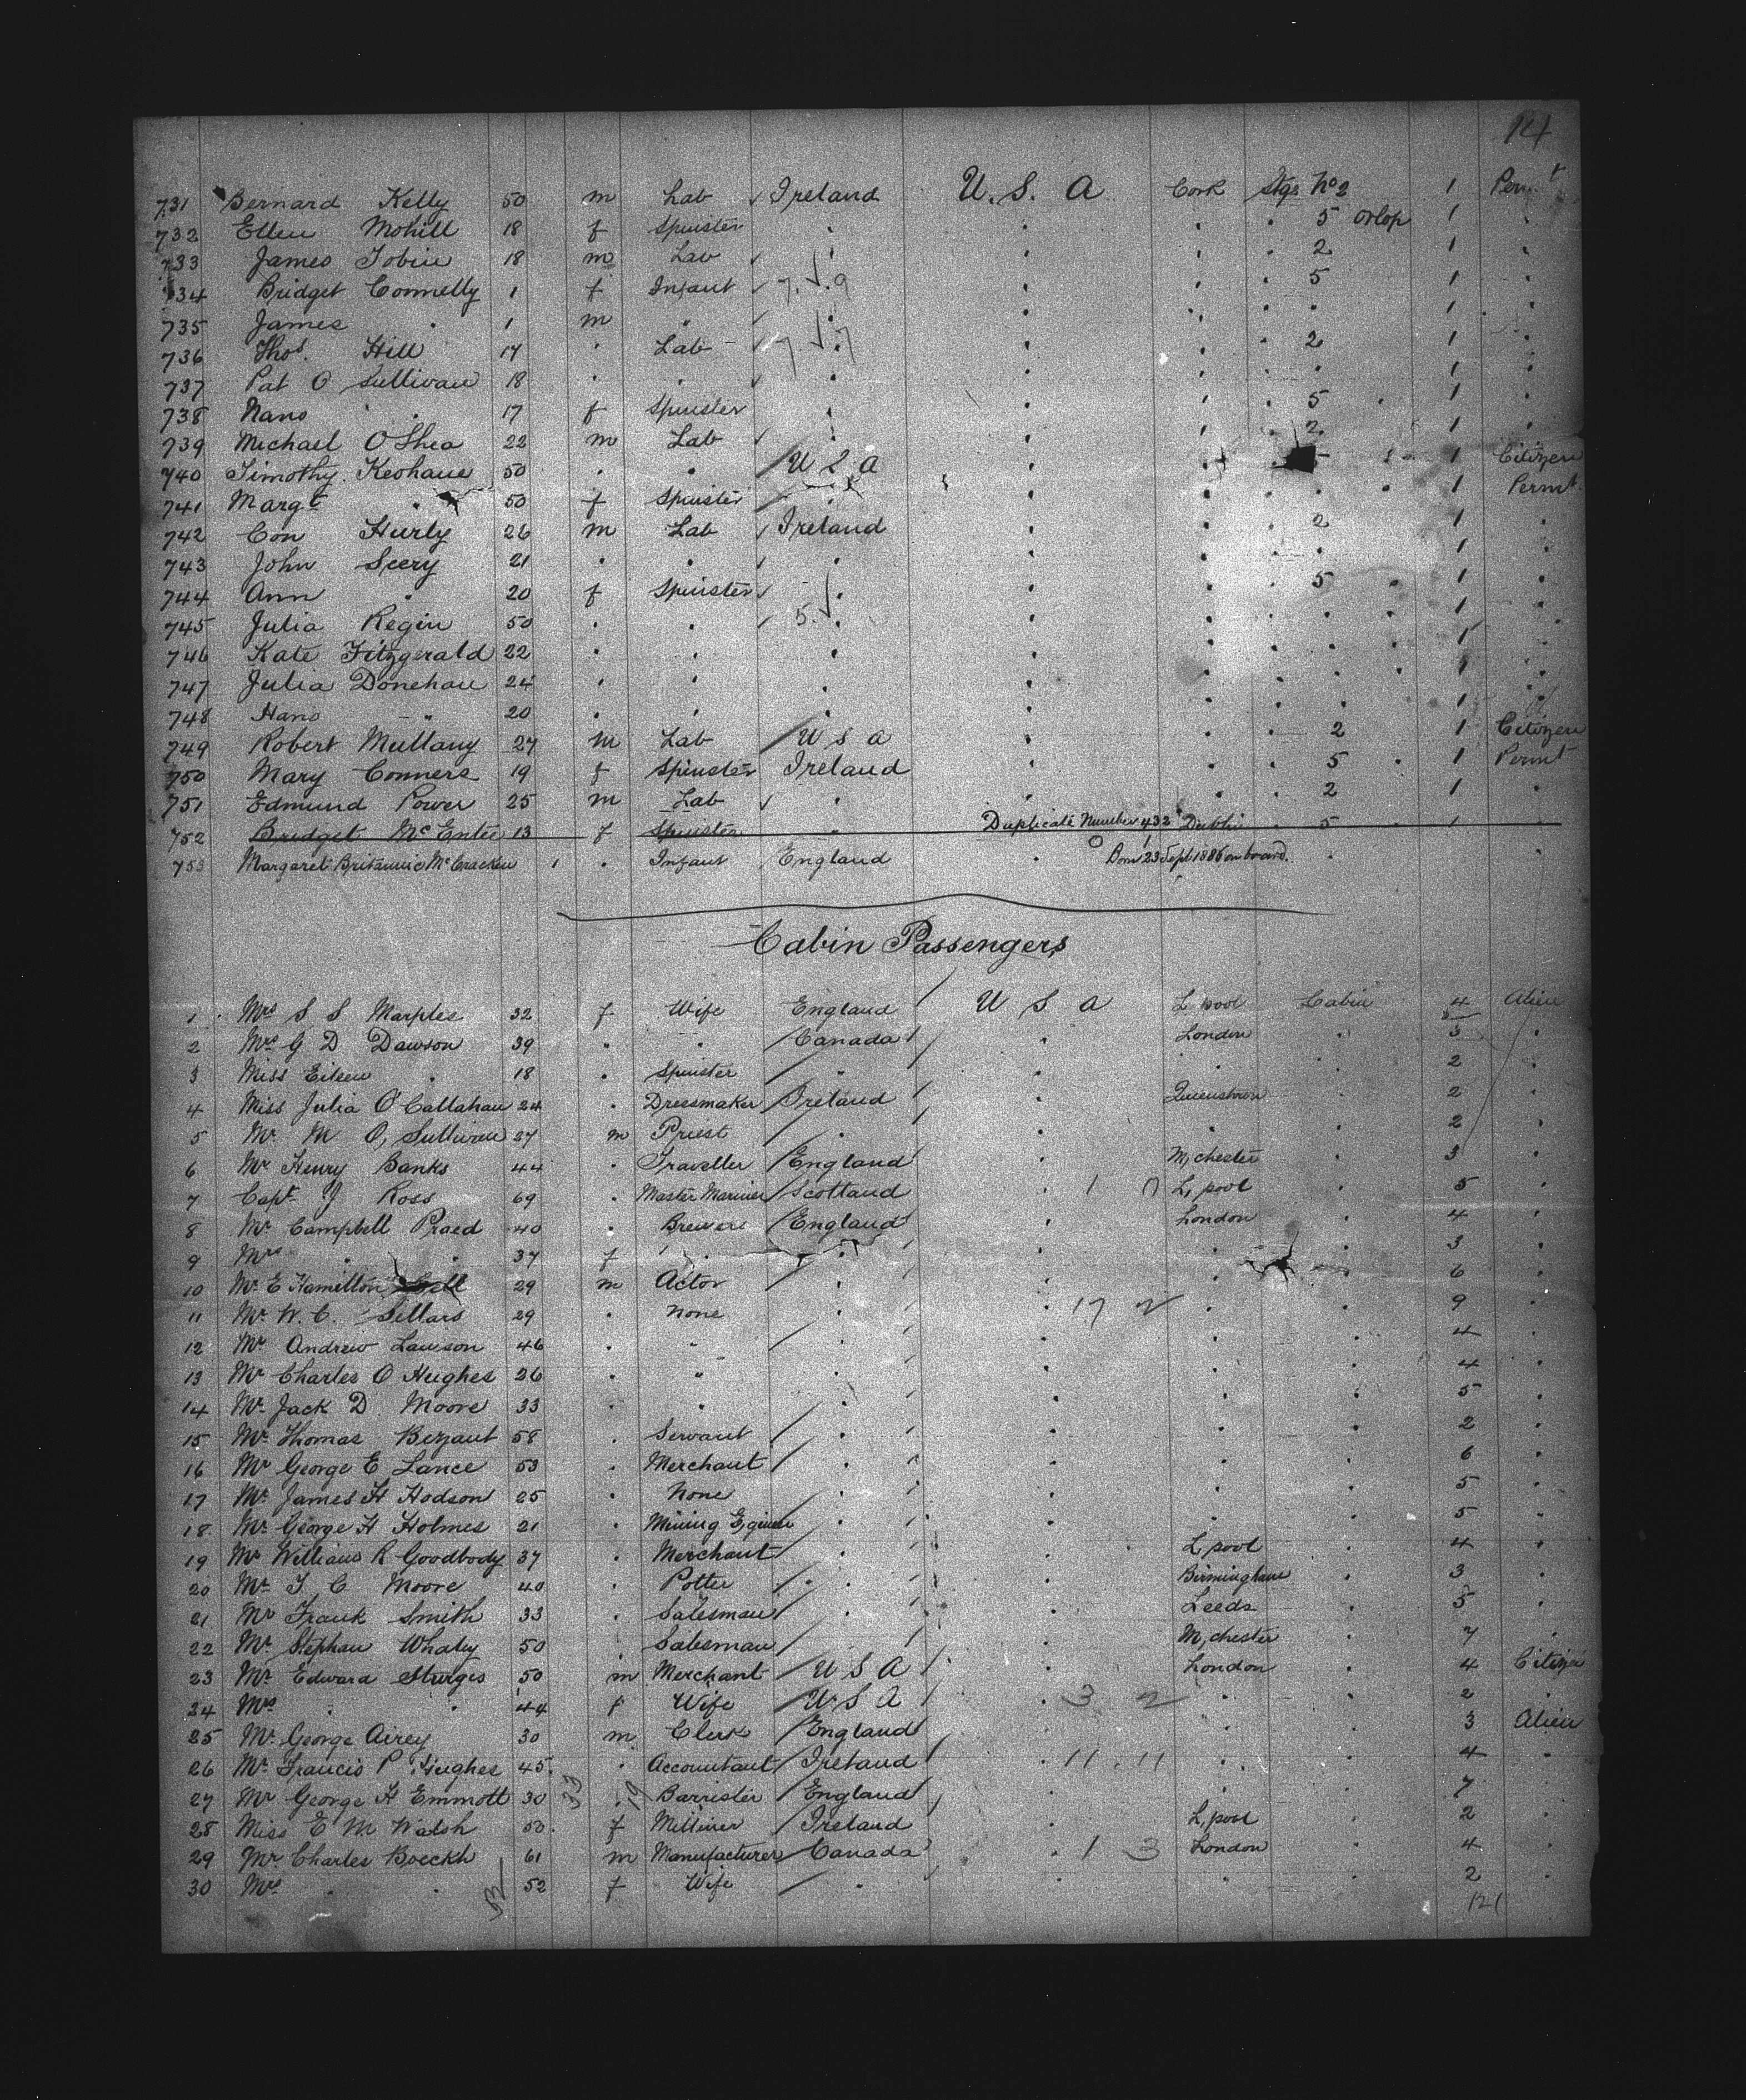 14
731 Bernard Kelly 50 m Lab Ireland U. S. A Cork Stge No 2 1 Permt
732 Ellen Mohill 18 f Spinster " " " 5 orlop 1 "
733 James Tobin 18 m Lab " " " " 2 1 "
734 Bridget Connelly 1 f Infant 7. . 9 " " " 5 1 "
735 James " 1 m " " " " " " 1 "
736 Thos. Hill 17 " Lab 7 7 " " " 2 1 "
737 Pat O Sullivan 18 " " " " " " " 1 "
738 Nano " " 17 f Spinster " " " " 5 " 1 "
739 Michael O'Shea 22 m Lab " " " " 2 1 "
740 Timothy Keohane 50 " " U S A " " 1 Citizen
741 Margt " 50 f Spinster " " " " " " 1 Permt
742 Con Hurly 26 m Lab Ireland " " " 2 1 "
743 John Seery 21 " " " " " " " 1 "
744 Ann " 20 f Spinster " " " " 5 " 1 "
745 Julia Regin 50 " " 5. " " " " " " 1 "
746 Kate Fitzgerald 22 " " " " " " " " 1 "
747 Julia Donehan 24 " " " " " " " " 1 "
748 Hano " 20 " " " " " " " " 1 "
749 Robert Mullany 27 m Lab U S A " " " 2 1 Citizen
750 Mary Conners 19 f Spinster Ireland " " " 5 " 1 Permt
751 Edmund Power 25 m Lab " " " " 2 1 "
752 Bridget McEntee 13 f Spinster " Duplicate Number 432 Dublin " 5 " 1 "
753 Margaret Britannic McCracken 1 " Infant England " Born 23 Sept 1886 on board. " "
Cabin Passengers
1 Mrs S S Marples 32 f Wife England U S A L'pool Cabin 4 Alien
2 Mrs G D Dawson 39 " " Canada " London " 3 "
3 Miss Eileen " 18 " Spinster " " " " 2 "
4 Miss Julia O'Callahan 24 " Dressmaker Ireland " Queenstown " 2 "
5 Mr M O, Sullivan 27 m Priest " " " " 2 "
6 Mr Henry Banks 44 " Traveller England " M,chester " 3 "
7 Capt J Ross 69 " Master Mariner Scotland " 1 0 L,pool " 5 "
8 Mr Campbell Praed 40 " Brewer England " London " 4 "
9 Mrs " " 37 f " " " " 3 "
10 Mr E Hamilton Bell 29 m Actor " " " " 6 "
11 Mr W. C. Sellars 29 " None " " 17 2 " " 9 "
12 Mr Andrew Lawson 46 " " " " " " 4 "
13 Mr Charles O Hughes 26 " " " " " " 4 "
14 Mr Jack D. Moore 33 " " " " " " 5 "
15 Mr Thomas Bezant 58 " Servant " " " " 2 "
16 Mr George E Lance 53 " Merchant " " " " 6 "
17 Mr James H Hodson 25 " None " " " " 5 "
18 Mr George H Holmes 21 " Mining E,gineer " " " " 5 "
19 Mr William R Goodbody 37 " Merchant " " L,pool " 4 "
20 Mr T C Moore 40 " Potter " " Birmingham " 3 "
21 Mr Frank Smith 33 " Salesman " " Leeds " 5 "
22 Mr Stephan Whaley 50 " Salesman " " M,chester " 7 "
23 Mr Edward Sturges 50 m Merchant U S A " London " 4 Citizen
24 Mrs " " 44 f Wife U S A " 3 2 " " 2 "
25 Mr George Airey 30 m Clerk England " " " 3 Alien
26 Mr Francis P Hughes 45 " Accountant Ireland " 11 11 " " 4 "
27 Mr George H Emmott 30 " Barrister England " " " 7 "
28 Miss E M Walsh f Milliner Ireland " L,pool " 2 "
29 Mr Charles Boeckh 61 m Manufacturer Canada " 1 3 London " 4 "
30 Mrs " " 52 f Wife " " " " 2 "
121